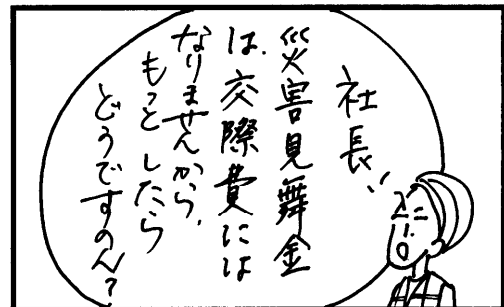 社長!!
災害見舞金
は、交際費には
なりませんから、
もっとしたら
どうですのん?